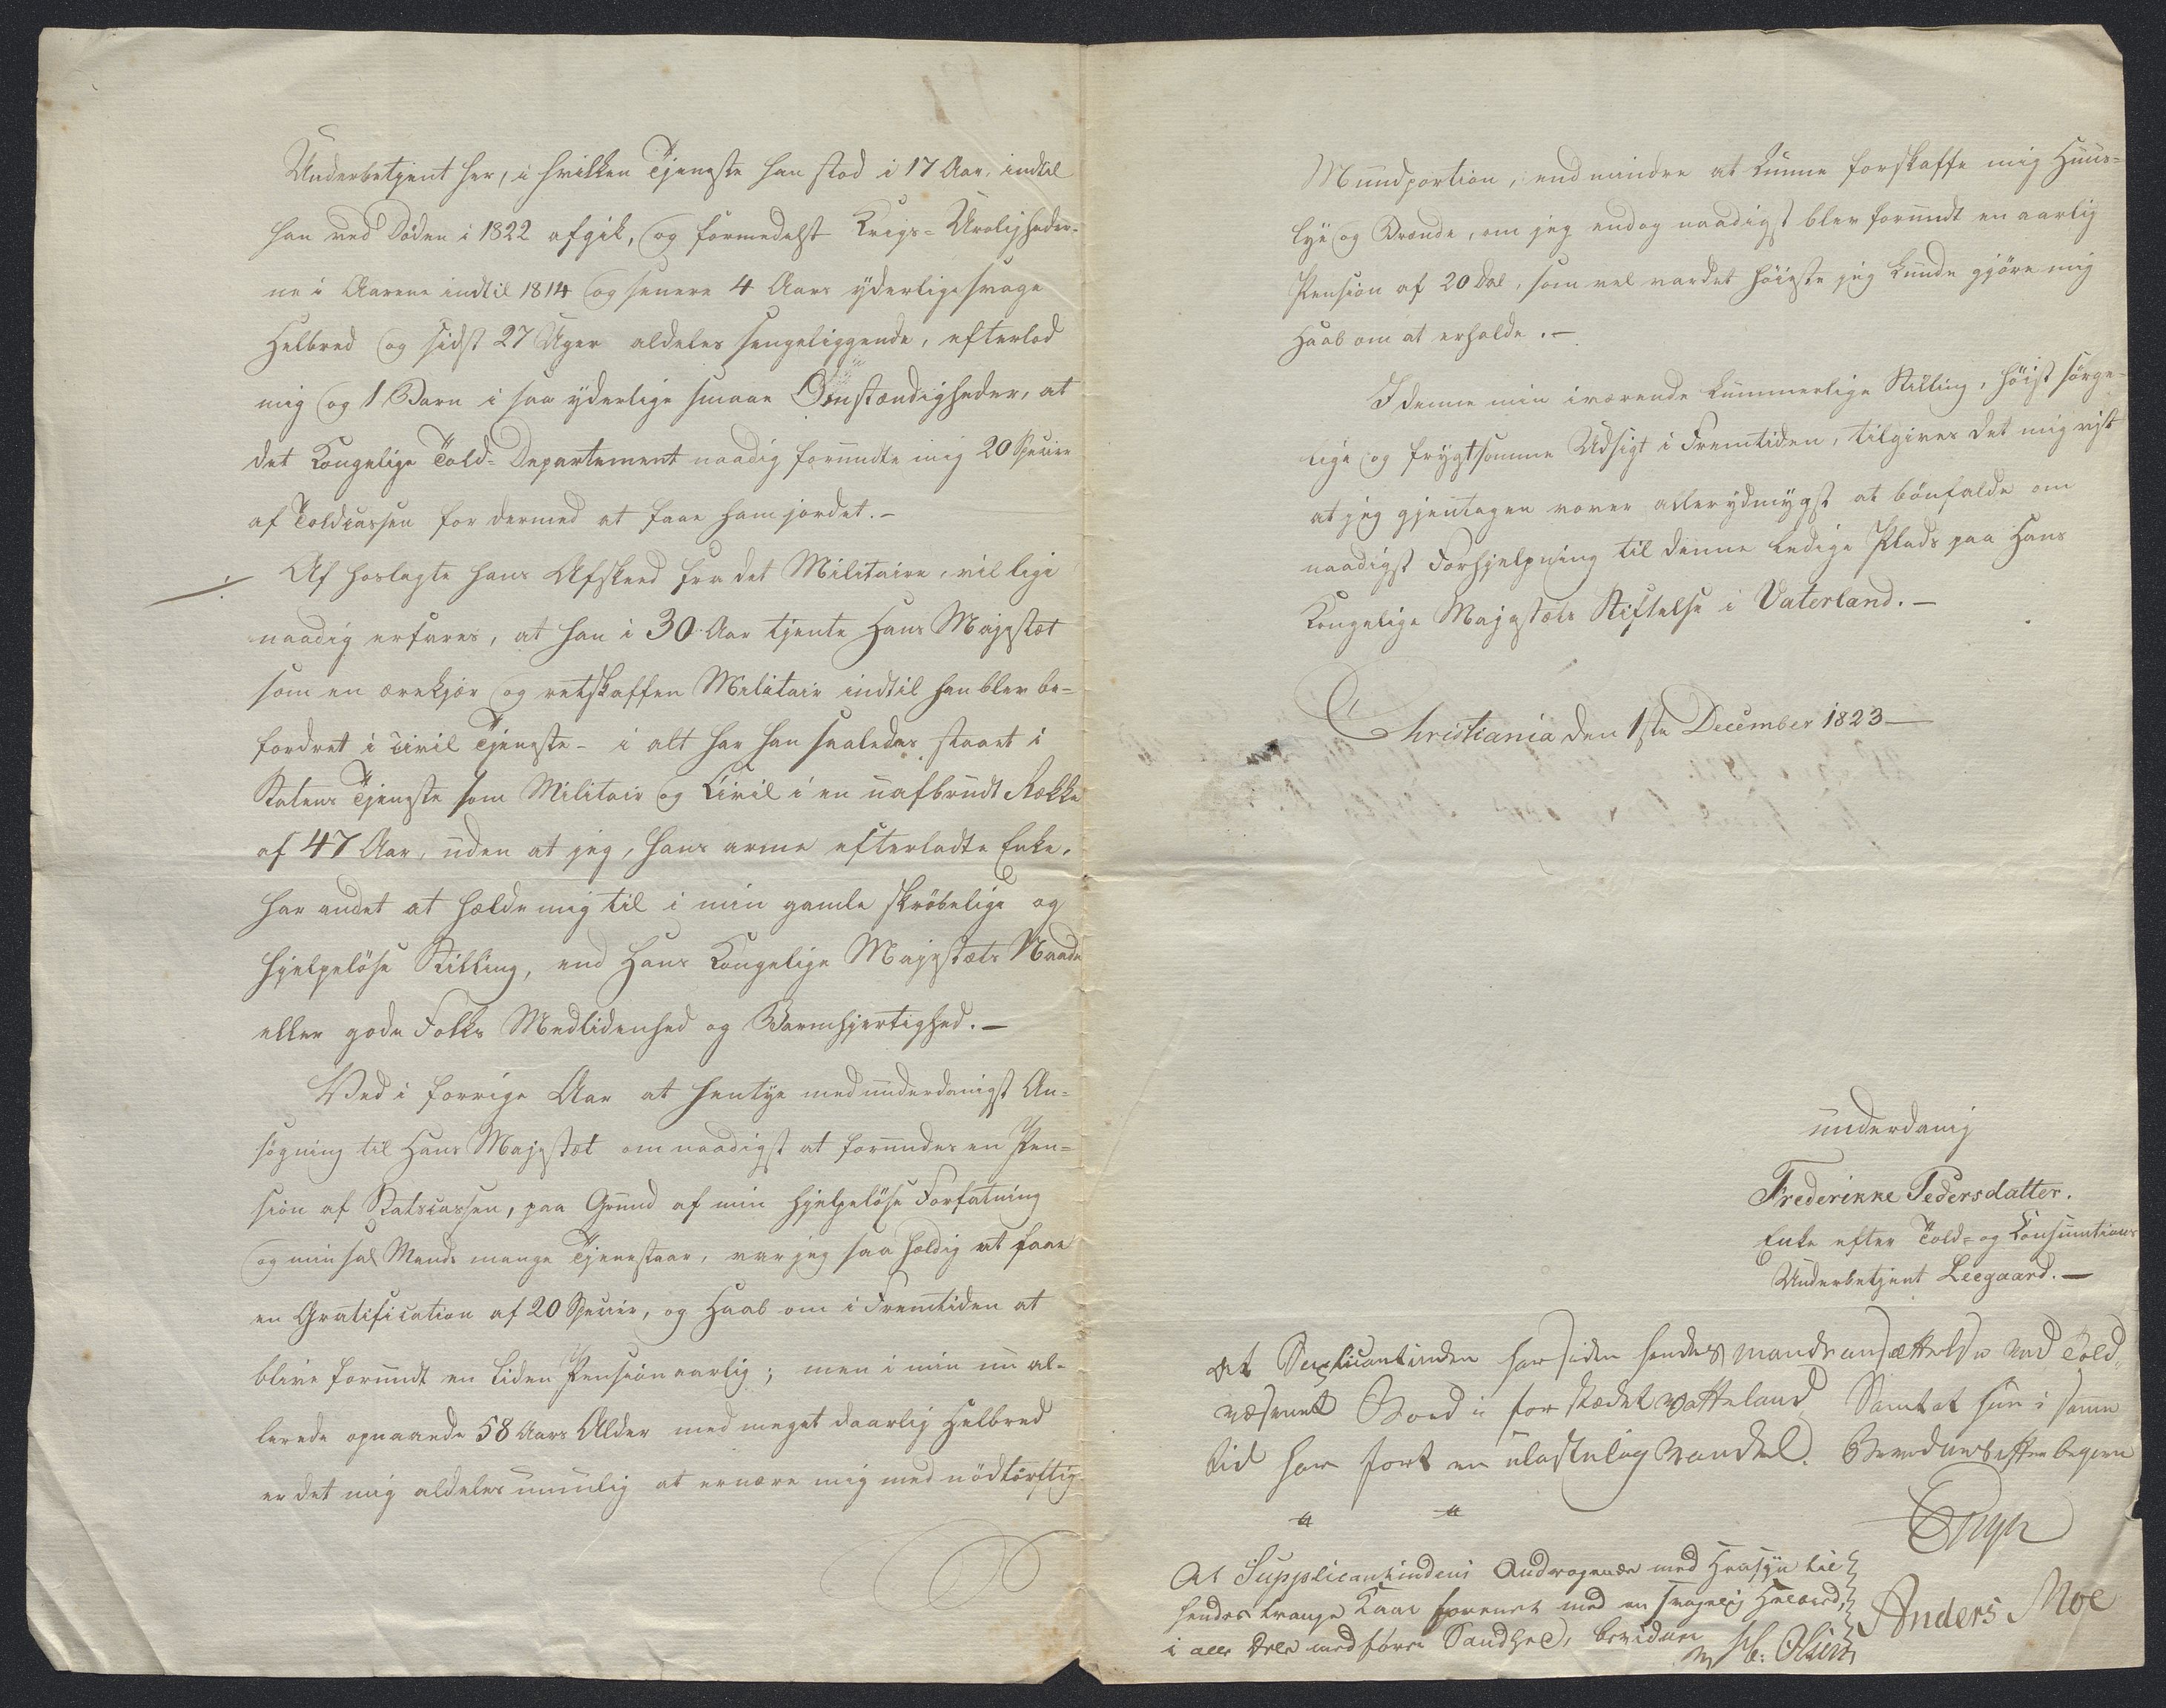 Underbetjent her, i hvilken Tjeneste han stod i 17 Aar, indtil
han ved Döden i 1822 afgik, og formedelst Krigs-Uroligheder-
ne i Aarene indtil 1814 og senere 4 Aars yderlige svage
Helbred og sidst 27 Uger aldeles sengeliggende, efterlod
mig og 1 Barn i saa yderlige smaae Omstændigheder, at
det Kongelige Told-Departement naadig forundte mig 20 Specier
af Toldcassen for dermed at faae ham jordet.-
Af hoslagte hans Afskeed fra det Militaire, vil lige
naadig erfares, at han i 30 Aar tjente Hans Majestæt
som en ærekjær og retskaffen Militair indtil han blev be-
fordret i Civil Tjeneste- i alt har han saaledes staaet i
Statens Tjeneste som Militair og Civil i en uafbrudt Række
af 47 Aar, uden at jeg, hans arme efterladte Enke,
har andet at holde mig til i min gamle skröbelige og
hjelpelöse Stilling, end Hans Kongelige Majestæts Naade
eller gode Folks Medlidenhed og Barmhjertighed.-
Ved i forrige Aar at hentye med underdanigst An-
søgning til Hans Majestæt om naadigst at forundes en Pen-
sion af Statscassen, paa Grund af min hjelpelöse Forfatning
og min sal Mands mange Tjenestaar, var jeg saa heldig at faae
en Gratification af 20 Specier, og Haab om i Fremtiden at
blive forundt en liden Pension aarlig; men i min nu al-
lerede opnaaede 58 Aars Alder med meget daarlig Helbred
er det mig aldeles umulig at ernære mig med nödtörftig
Mundportion, end mindre at kunne forskaffe mig Huus-
lye og Brænde, om jeg endog naadigst blev forundt en aarlig
Pension af 20 Dal, som vel var det höieste jeg kunde gjöre mig
Haab om at erholde.-
I denne min iværende kummerlige Stilling, höist sörge-
lige og frygtsomme Udsigt i Fremtiden, tilgives det mig vist
at jeg gjentagen vover allerydmygst at bönfalde om
naadigst Forhjelpning til denne ledige Plads paa Hans
Kongelige Majestæts Stiftelse i Vaterland.-
Christiania den 1ste December 1823-
underdanig
Frederikke Pedersdatter.
Enke efter Told- og Consumtions
Underbetjent Leegaard.-
At Suplicantinden har siden hendes mands ansættelse ved Told
væsenet Boed i forstædet Vatteland Samt at hun i samme
tid har fort en ulastelig Vandel. Bevidnes efter begjern
At Supplicantindens Andragende med Hensyn til
hendes trange Kaar forenet med en svagelig Helbred,
i alle Dele medfører Sandhed, bevidner
Anders Moe
Olsen